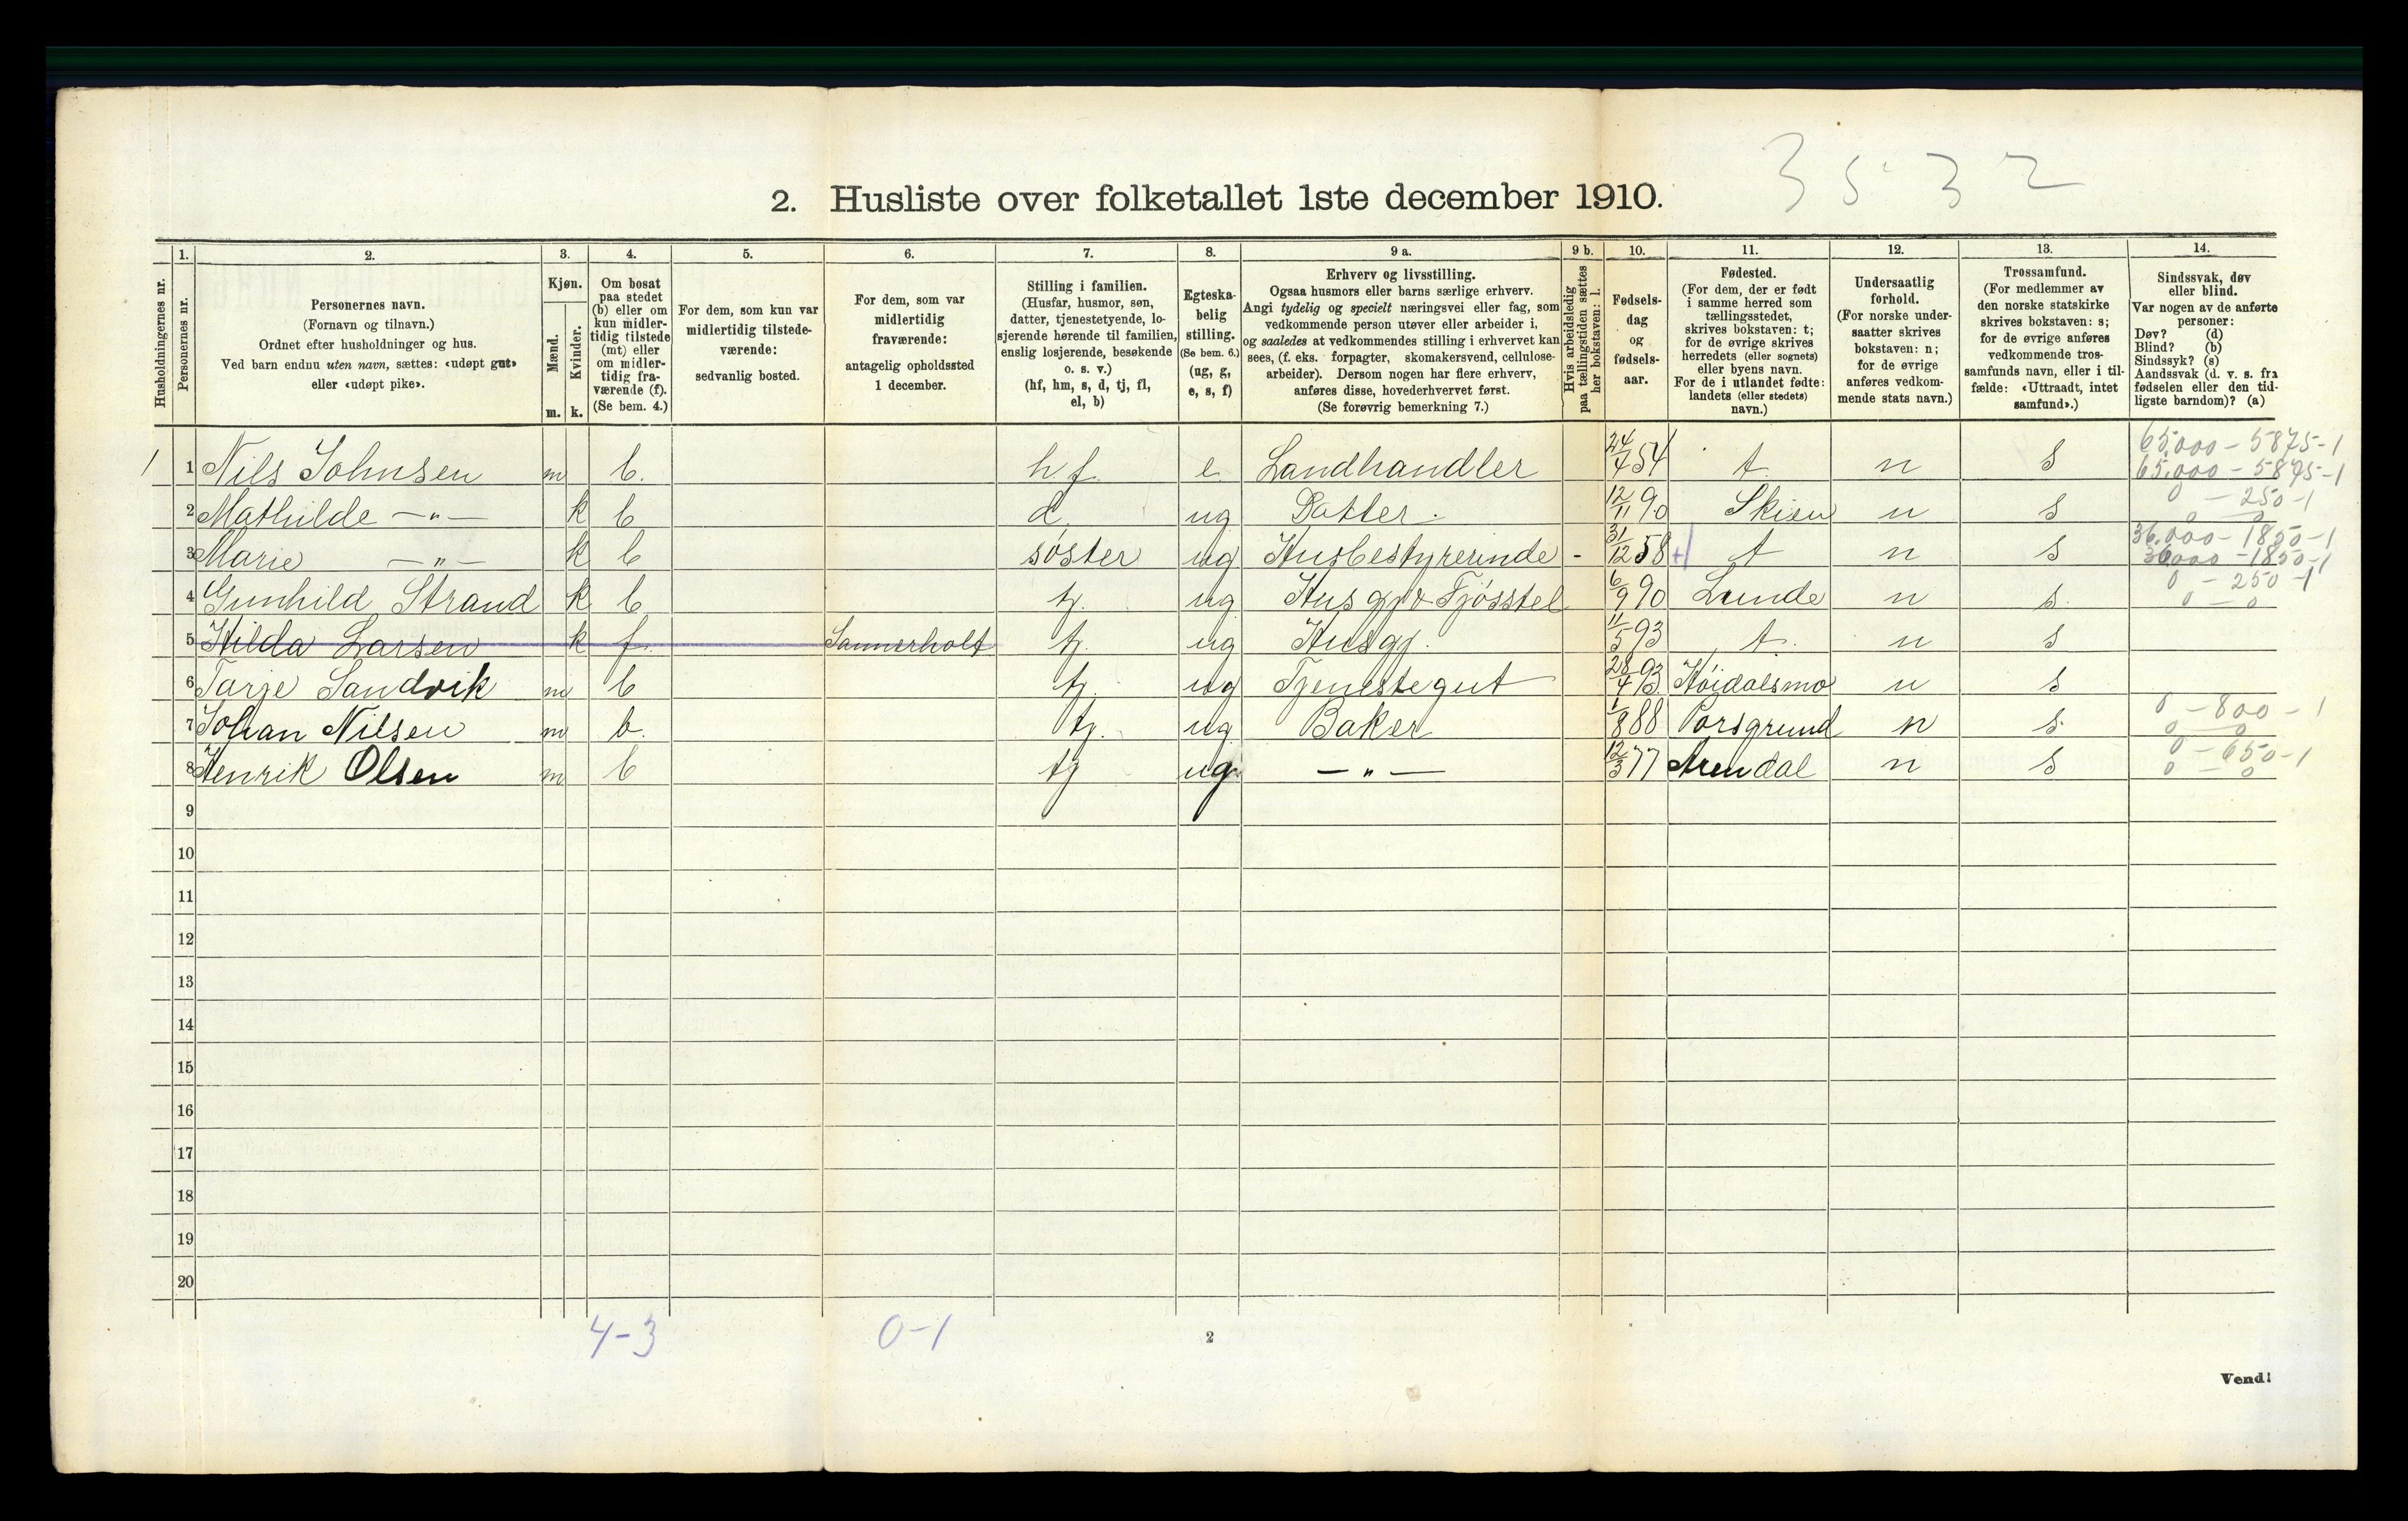 3532
2. Husliste over folketallet 1ste december 1910.
Husholdningernes nr.
1.
Personernes nr.
2.
Personernes navn.
(Fornavn og tilnavn.)
Ordnet efter husholdninger og hus.
Ved barn endnu uten navn, sættes: «udøpt gut»
eller «udøpt pike».
3.
Kjøn.
Mænd.
m.
Kvinder.
k.
4.
Om bosat
paa stedet
(b) eller om
kun midler-
tidig tilstede
(mt) eller
om midler-
tidig fra-
værende (f).
(Se bem. 4.)
5.
For dem, som kun var
midlertidig tilstede-
værende:
sedvanlig bosted.
6.
For dem, som var
midlertidig
fraværende:
antagelig opholdssted
1 december.
7.
Stilling i familien.
(Husfar, husmor, søn,
datter, tjenestetyende, lo-
sjerende hørende til familien,
enslig losjerende, besøkende
o. s. v.)
(hf, hm, s, d, tj, fl,
el, b)
8.
Egteska-
belig
stilling.
(Se bem. 6.)
(ug, g,
e, s, f)
9 a.
Erhverv og livsstilling.
Ogsaa husmors eller barns særlige erhverv.
Angi tydelig og specielt næringsvei eller fag, som
vedkommende person utøver eller arbeider i,
og saaledes at vedkommendes stilling i erhvervet kan
sees, (f. eks. forpagter, skomakersvend, cellulose-
arbeider). Dersom nogen har flere erhverv,
anføres disse, hovederhvervet først.
(Se forøvrig bemerkning 7.)
9 b.
Hvis arbeidsledig
paa tællingstiden sættes
her bokstaven: l.
10.
Fødsels-
dag
og
fødsels-
aar.
11.
Fødested.
(For dem, der er født
i samme herred som
tællingsstedet,
skrives bokstaven: t;
for de øvrige skrives
herredets (eller sognets)
eller byens navn.
For de i utlandet fødte:
landets (eller stedets)
navn.)
12.
Undersaatlig
forhold.
(For norske under-
saatter skrives
bokstaven: n;
for de øvrige
anføres vedkom-
mende stats navn.)
13.
Trossamfund.
(For medlemmer av
den norske statskirke
skrives bokstaven: s;
for de øvrige anføres
vedkommende tros-
samfunds navn, eller i til-
fælde: «Uttraadt, intet
samfund».)
14.
Sindssvak, døv
eller blind.
Var nogen av de anførte
personer:
Døv? (d)
Blind? (b)
Sindssyk? (s)
Aandssvak (d. v. s. fra
fødselen eller den tid-
ligste barndom)? (a)
1 1 Nils Johnsen m b. h.f. e. Landhandler 24/4 54 t. n s 65.000 - 5875 - 1
65.000 - 5875 - 1
2 Mathilde —„— k b d. ug Datter. 12/11 90 Skien n s 0 - 250 - 1
0 - 0
3 Marie —„— k b søster ug Husbestyrerinde - 31/12 58 t n s 36.000 - 1850 - 1
36000 - 1850 - 1
4 Gunhild Strand k b tj. ug Husgj & Fjøsstel 6/9 90 Lunde n s. 0 - 250 - 1
0 - 0
5 Hilda Larsen k f. Sannerholt tj. ug Husgj. 11/5 93 t. n s
6 Tarje Sandvik m b tj. ug Tjenestegut 28/4 93 Høidalsmo n s
7 Johan Nilsen m b. tj. ug Baker 1/8 88 Porsgrund n s. 0 - 800 - 1
0 - 0
8 Henrik Olsen m b tj ug. —„— 12/3 77 Arendal n s 0 - 650 - 1
0 - 0
9
10
11
12
13
14
15
16
17
18
19
20
4-3 0-1
2
Vend!